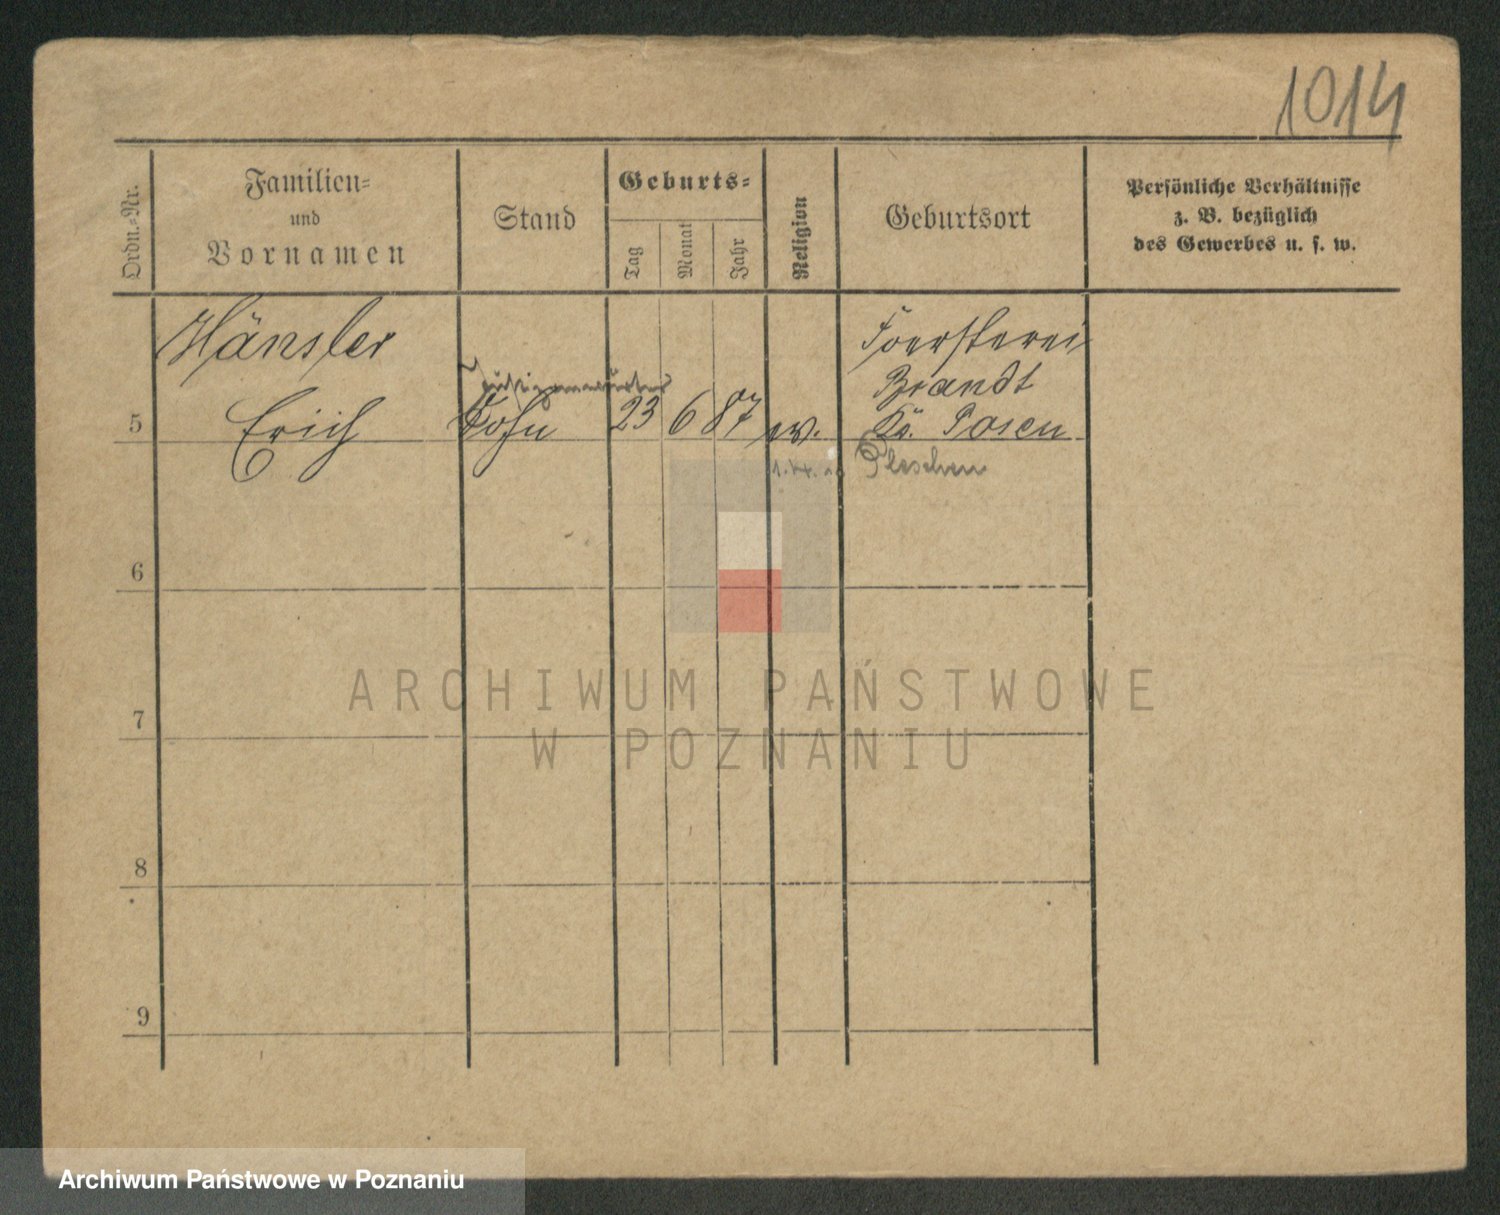 1014
Ordn.-Nr.
Familien-
und
Vornamen
Stand
Geburts-
Tag
Monat
Jahr
Religion
Geburtsort
Persönliche Verhältnisse
z. B. bezüglich
des Gewerbes u. s. w.
Hänsler
Foersterei
Brandt
5 Erich Sohn 23 6 87 ev. Kr. Posen
Pleschen
6
ARCHIWUM PAŃSTWOWE
7
W POZNANIU
8
9
Archiwum Państwowe w Poznaniu